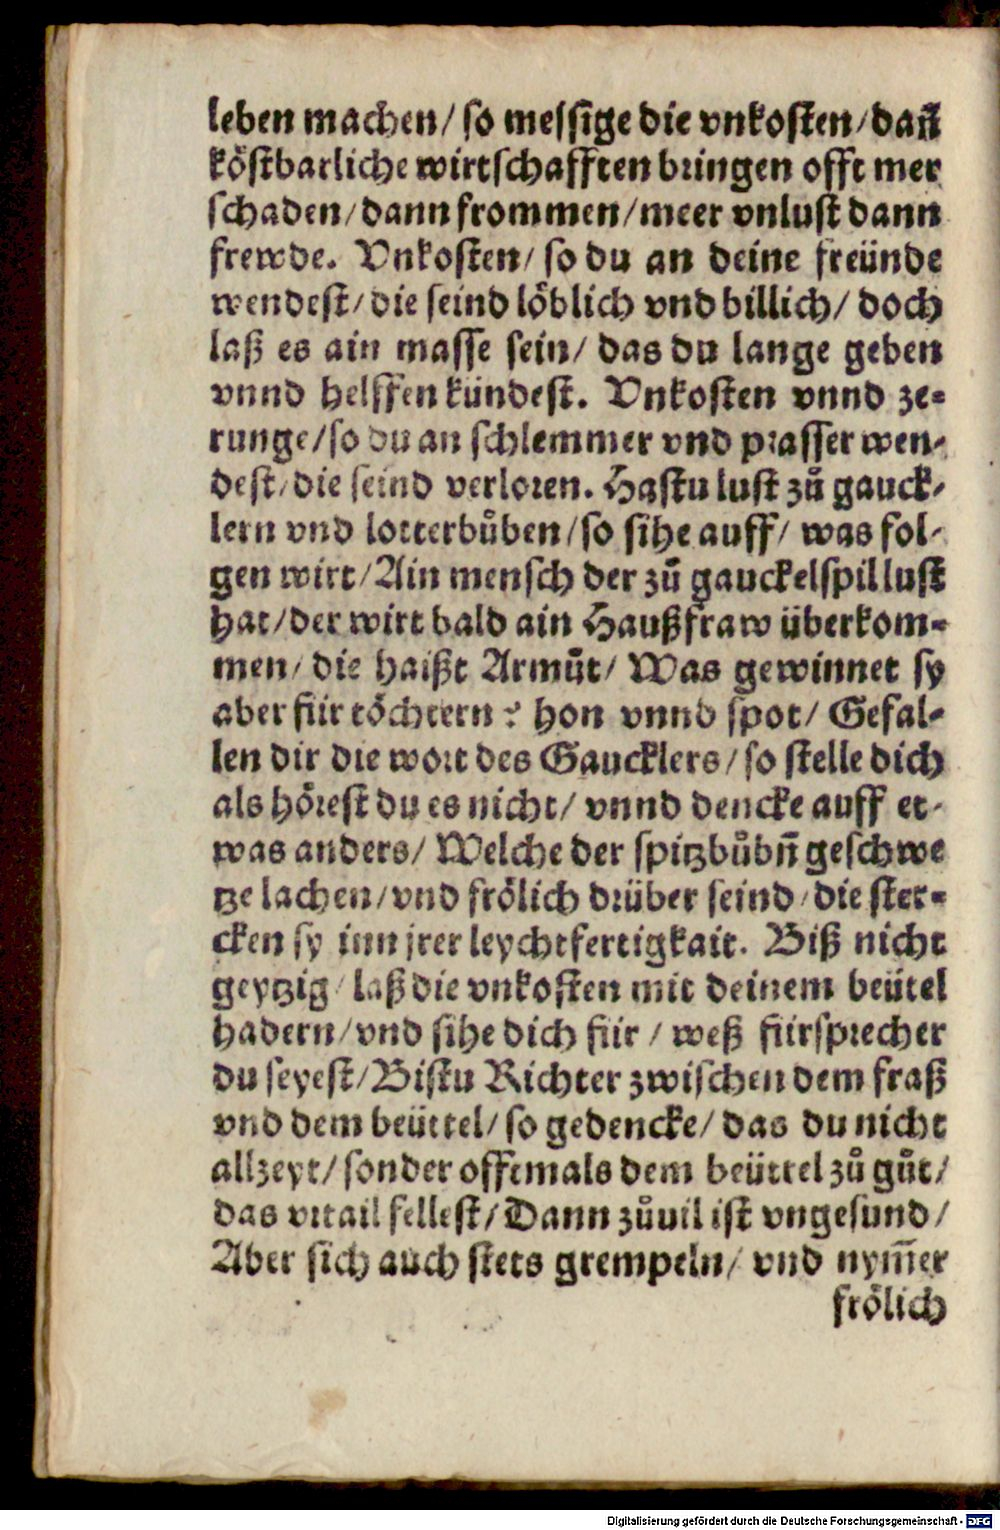 leben machen/ so messige die vnkosten/ dañ
köstbarliche wirtschafften bringen offt mer
schaden/ dann frommen/ meer vnlust dann
frewde. Vnkosten/ so du an deine freünde
wendest/ die seind löblich vnd billich/ doch
laß es ain masse sein/ das du lange geben
vnnd helffen kündest. Vnkosten vnnd ze-
runge/ so du an schlemmer vnd prasser wen-
dest/ die seind verloren. Hastu lust zů gauck-
lern vnd lotterbůben/ so sihe auff/ was fol-
gen wirt/ Ain mensch der zů gauckelspil lust
hat/ der wirt bald ain Haußfraw überkom-
men/ die haißt Armůt/ Was gewinnet sy
aber für töchtern? hon vnnd spot/ Gefal-
len dir die wort des Gaucklers/ so stelle dich
als hörest du es nicht/ vnnd dencke auff et-
was anders/ Welche der spitzbůbñ geschwe
tze lachen/ vnd frölich drüber seind/ die ster-
cken sy inn jrer leychtfertigkait. Biß nicht
geytzig/ laß die vnkosten mit deinem beütel
hadern/ vnd sihe dich für/ weß fürsprecher
du seyest/ Bistu Richter zwischen dem fraß
vnd dem beüttel/ so gedencke/ das du nicht
allzeyt/ sonder offtmals dem beüttel zů gůt/
das vrtail fellest/ Dann zůuil ist vngesund/
Aber sich auch stets grempeln/ vnd nym̃er
frölich
Digitalisierung gefördert durch die Deutsche Forschungsgemeinschaft - DFG